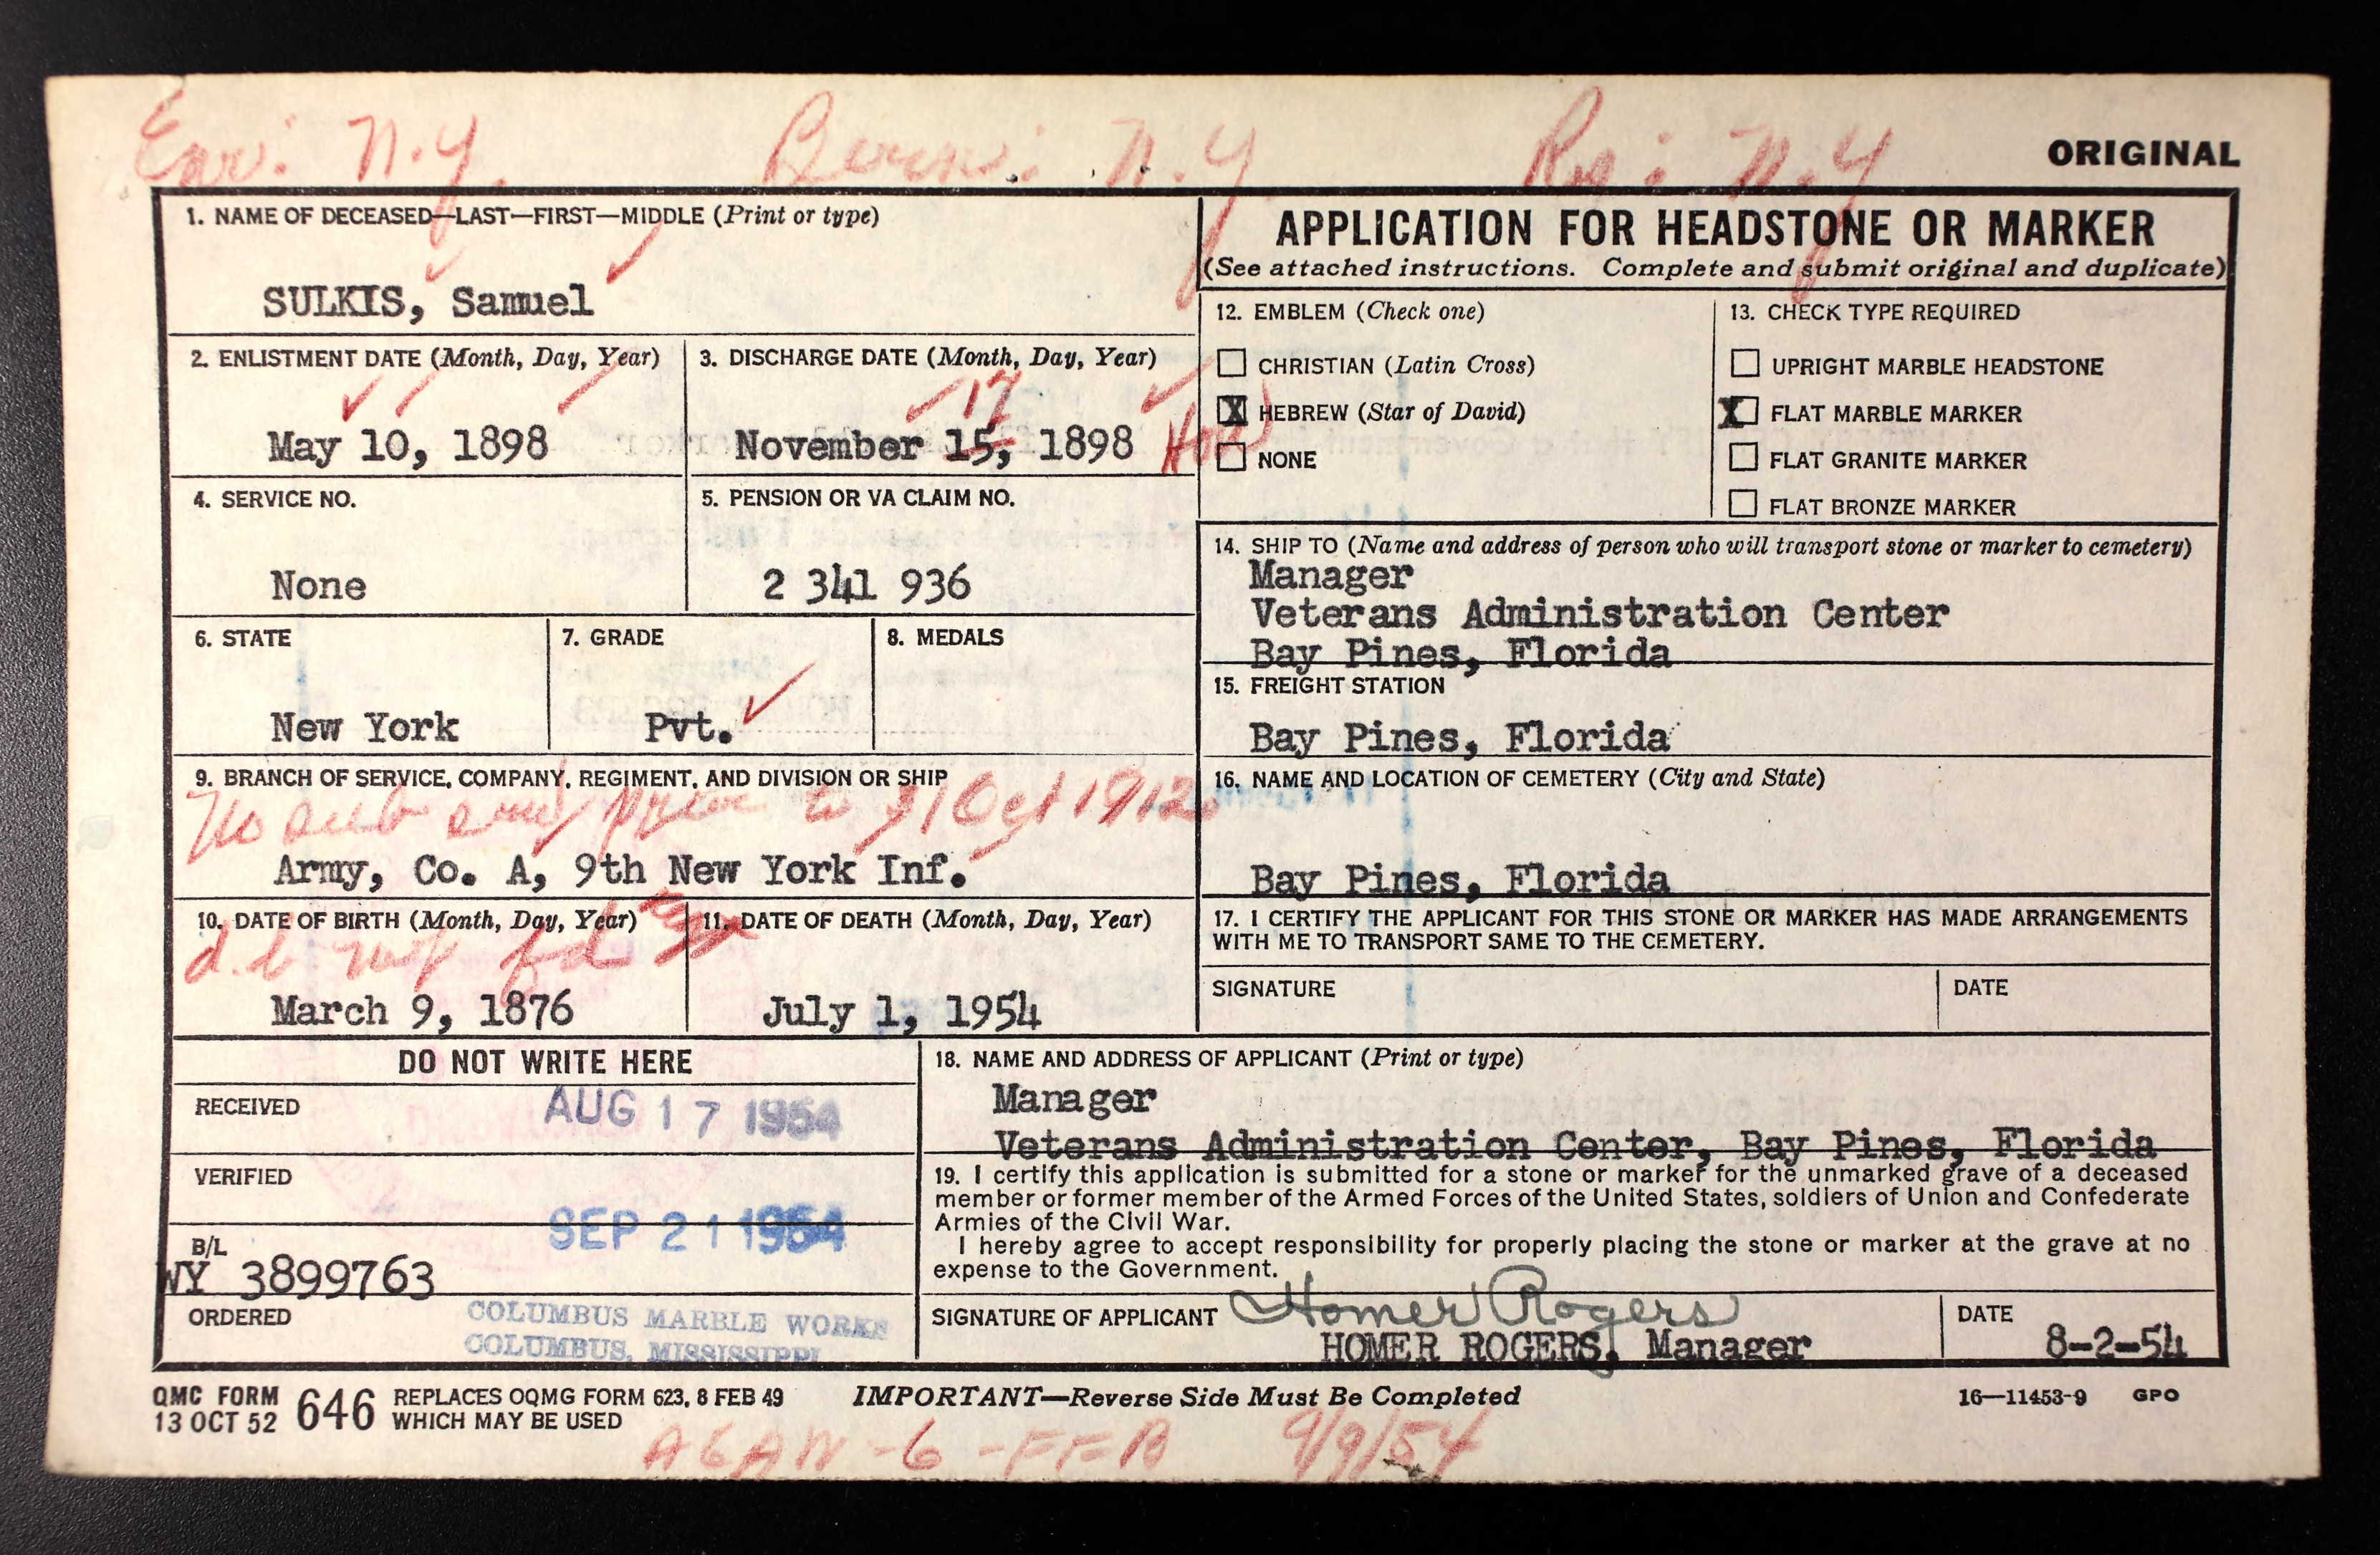 Enr: N.Y. Res: N.Y
ORIGINAL
1. NAME OF DECEASED—LAST—FIRST—MIDDLE (Print or type)
SULKIS, Samuel
2. ENLISTMENT DATE (Month, Day, Year)
May 10, 1898
3. DISCHARGE DATE (Month, Day, Year)
17
November 15, 1898 Hon
4. SERVICE NO.
None
5. PENSION OR VA CLAIM NO.
2 341 936
6. STATE
New York
7. GRADE
Pvt.
8. MEDALS
9. BRANCH OF SERVICE, COMPANY, REGIMENT, AND DIVISION OR SHIP
No sub serv prior to 31 Oct 1912
Army, Co. A, 9th New York Inf.
10. DATE OF BIRTH (Month, Day, Year)
d.b not fd
March 9, 1876
11. DATE OF DEATH (Month, Day, Year)
July 1, 1954
APPLICATION FOR HEADSTONE OR MARKER
(See attached instructions. Complete and submit original and duplicate)
12. EMBLEM (Check one)
CHRISTIAN (Latin Cross)
X HEBREW (Star of David)
NONE
13. CHECK TYPE REQUIRED
UPRIGHT MARBLE HEADSTONE
X FLAT MARBLE MARKER
FLAT GRANITE MARKER
FLAT BRONZE MARKER
14. SHIP TO (Name and address of person who will transport stone or marker to cemetery)
Manager
Veterans Administration Center
Bay Pines, Florida
15. FREIGHT STATION
Bay Pines, Florida
16. NAME AND LOCATION OF CEMETERY (City and State)
Bay Pines, Florida
17. I CERTIFY THE APPLICANT FOR THIS STONE OR MARKER HAS MADE ARRANGEMENTS
WITH ME TO TRANSPORT SAME TO THE CEMETERY.
SIGNATURE
DATE
DO NOT WRITE HERE
RECEIVED AUG 17 1954
VERIFIED
SEP 21 1954
B/L
WY 3899763
ORDERED
COLUMBUS MARBLE WORKS
COLUMBUS, MISSISSIPPI
18. NAME AND ADDRESS OF APPLICANT (Print or type)
Manager
Veterans Administration Center, Bay Pines, Florida
19. I certify this application is submitted for a stone or marker for the unmarked grave of a deceased
member or former member of the Armed Forces of the United States, soldiers of Union and Confederate
Armies of the Civil War.
I hereby agree to accept responsibility for properly placing the stone or marker at the grave at no
expense to the Government.
SIGNATURE OF APPLICANT Homer Rogers
HOMER ROGERS, Manager
DATE
8-2-54
QMC FORM 646
13 OCT 52
REPLACES OQMG FORM 623, 8 FEB 49
WHICH MAY BE USED
IMPORTANT—Reverse Side Must Be Completed
16—11453-9 GPO
AGAN-6-FF-B 9/9/54